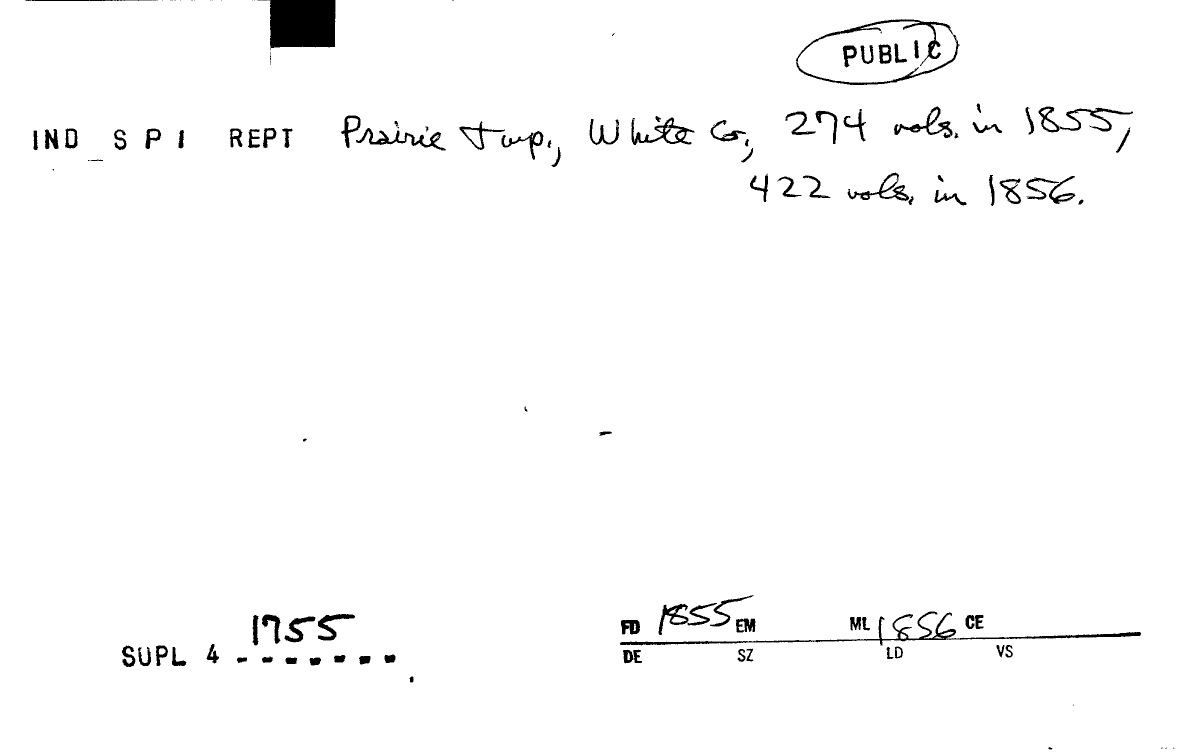 PUBLIC
IND SPI REPT Prairie Twp., White Co., 274 vols. in 1855,
422 vols. in 1856.
SUPL 4 1755
FD 1855 EM ML 1856 CE
DE SZ LD VS